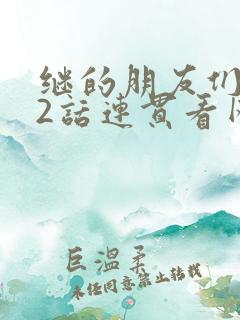 继的朋友们
2話連黄看
巨温柔
未经同意禁止转载